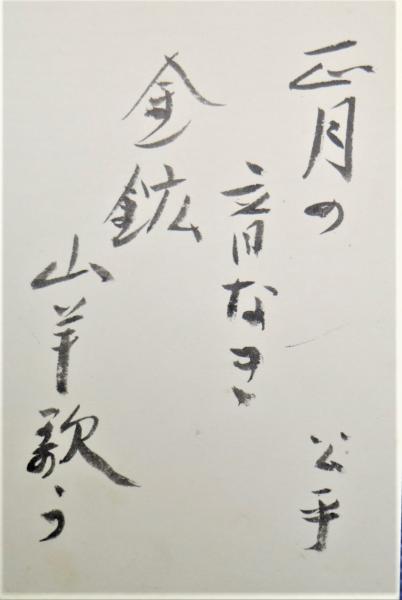 正月の
音なき
金鉱
山羊歌う
公平